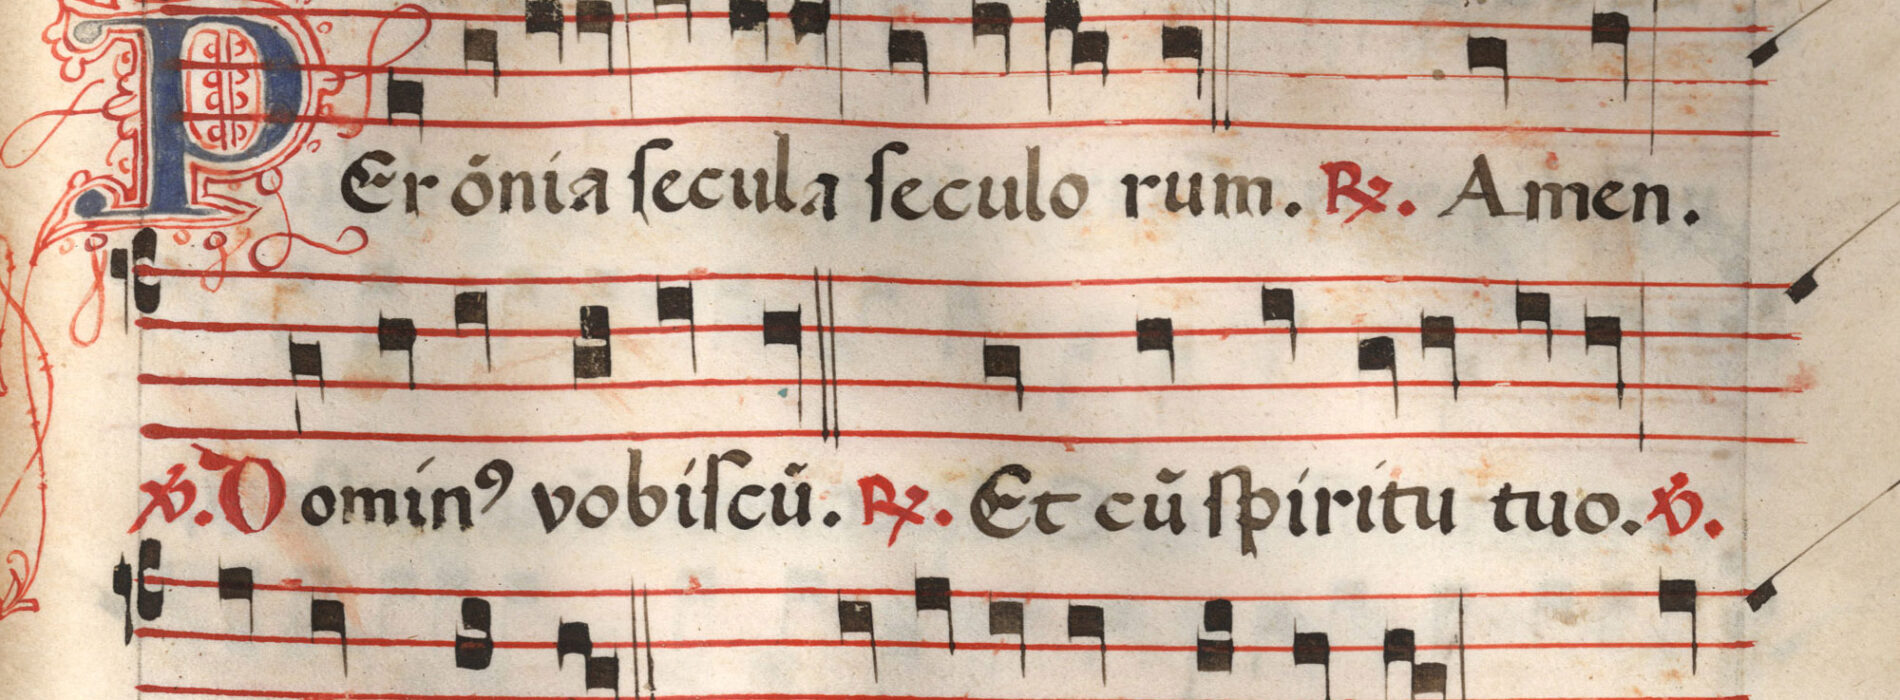 PEr õnia secula seculo rum. ℟. Amen.
℣. Dominꝰ vobiscũ. ℟. Et cũ spiritu tuo. ℣.